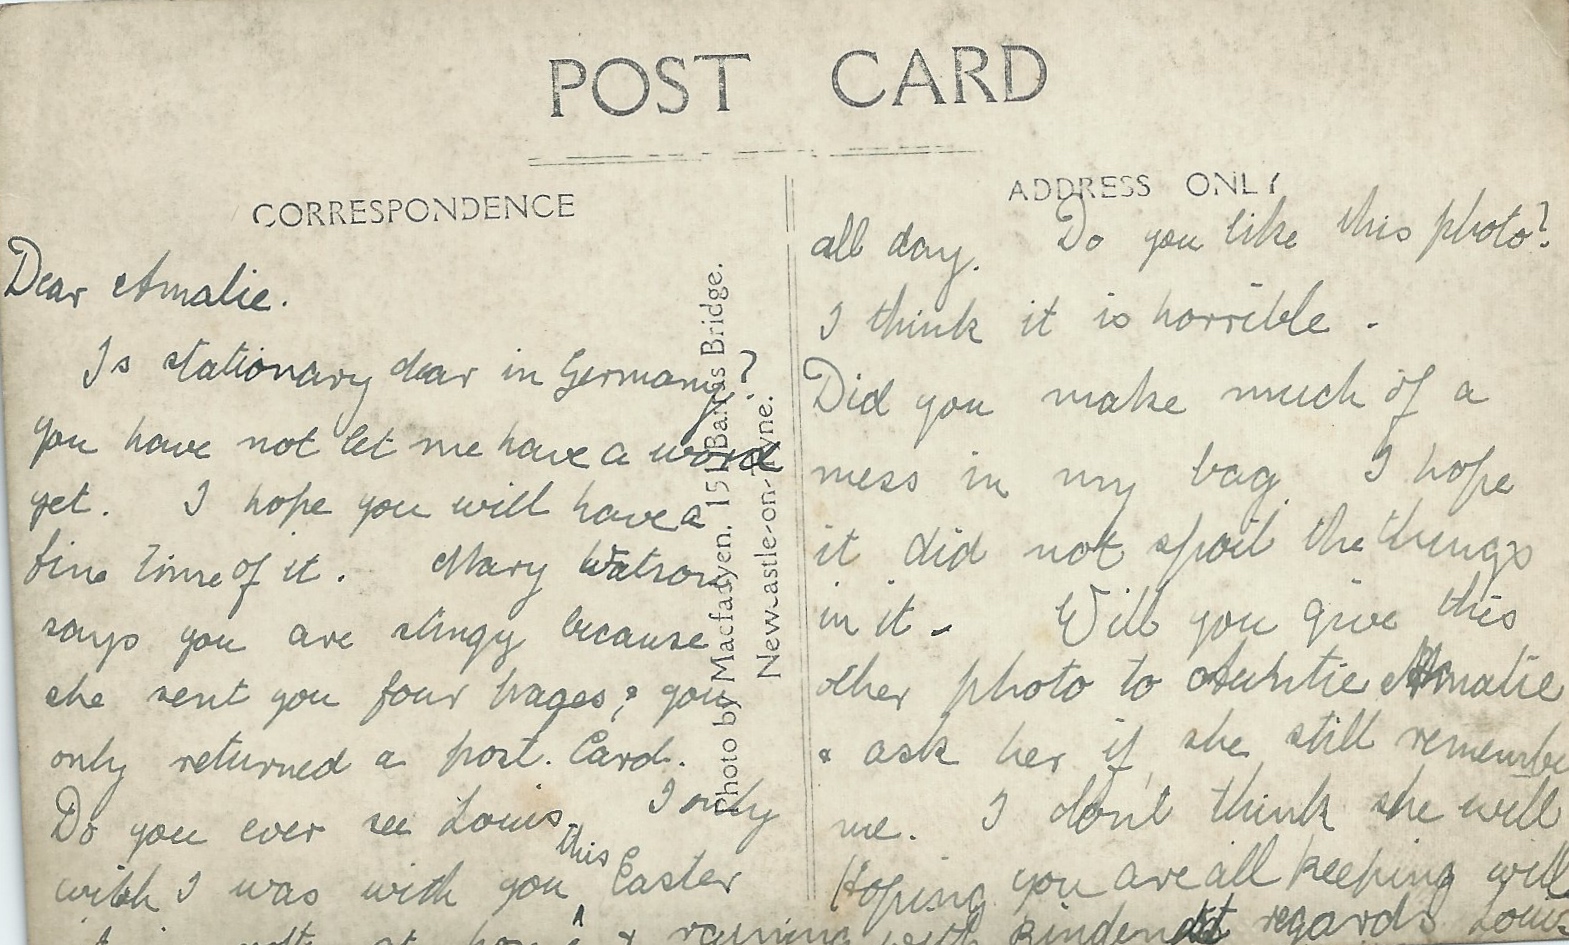 POST CARD
CORRESPONDENCE
Dear Amalie.
Is stationary dear in Germany?
you have not let me have a word
yet. I hope you will have a
fine time of it. Mary Watson
says you are stingy because
she sent you four pages, & you
only returned a post. Card.
Do you ever see Louis. I only
this
wish I was with you ^ Easter
at & raining
Photo by Macfadyen. 151 Barras Bridge.
Newcastle-on-Tyne.
ADDRESS ONLY
all day. Do you like this photo?
I think it is horrible.
Did you make much of a
mess in my bag. I hope
it did not spoil the things
in it. Will you give this
other photo to Auntie Amalie
& ask her if she still remembe
me. I don't think she will
Hoping you are all keeping well
with kindest regards Louis